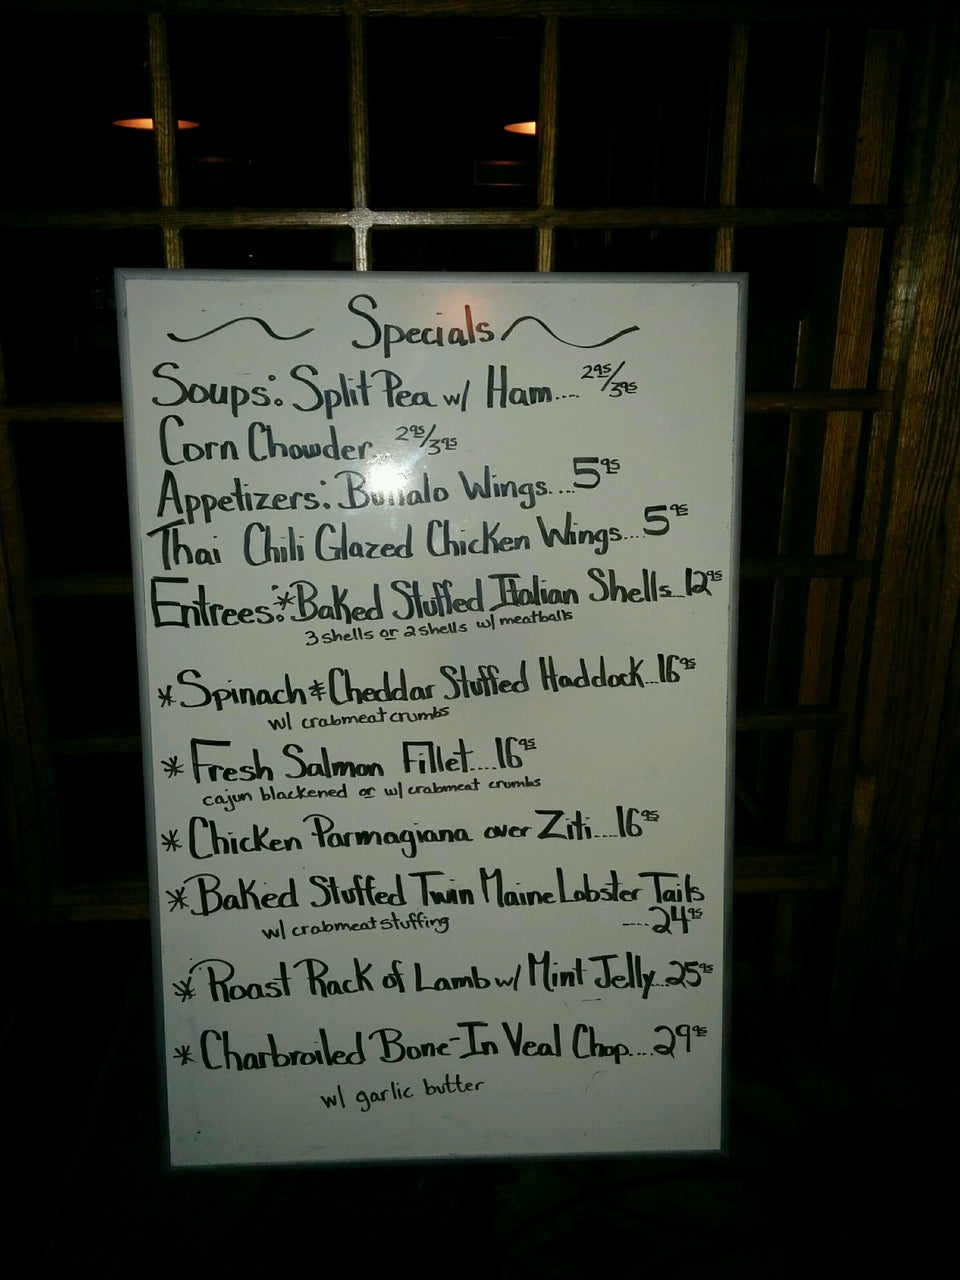 Specials
Soups: Split Pea w/ Ham.... 2⁹⁵/3⁹⁵
Corn Chowder... 2⁹⁵/3⁹⁵
Appetizers: Buffalo Wings....5⁹⁵
Thai Chili Glazed Chicken Wings...5⁹⁵
Entrees: *Baked Stuffed Italian Shells...12⁹⁵
3 shells or 2 shells w/ meatballs
*Spinach & Cheddar Stuffed Haddock...16⁹⁵
w/ crabmeat crumbs
* Fresh Salmon Fillet....16⁹⁵
cajun blackened or w/ crabmeat crumbs
* Chicken Parmagiana over Ziti....16⁹⁵
*Baked Stuffed Twin Maine Lobster Tails
w/ crabmeat stuffing ----24⁹⁵
* Roast Rack of Lamb w/ Mint Jelly...25⁹⁵
* Charbroiled Bone-In Veal Chop....29⁹⁵
w/ garlic butter